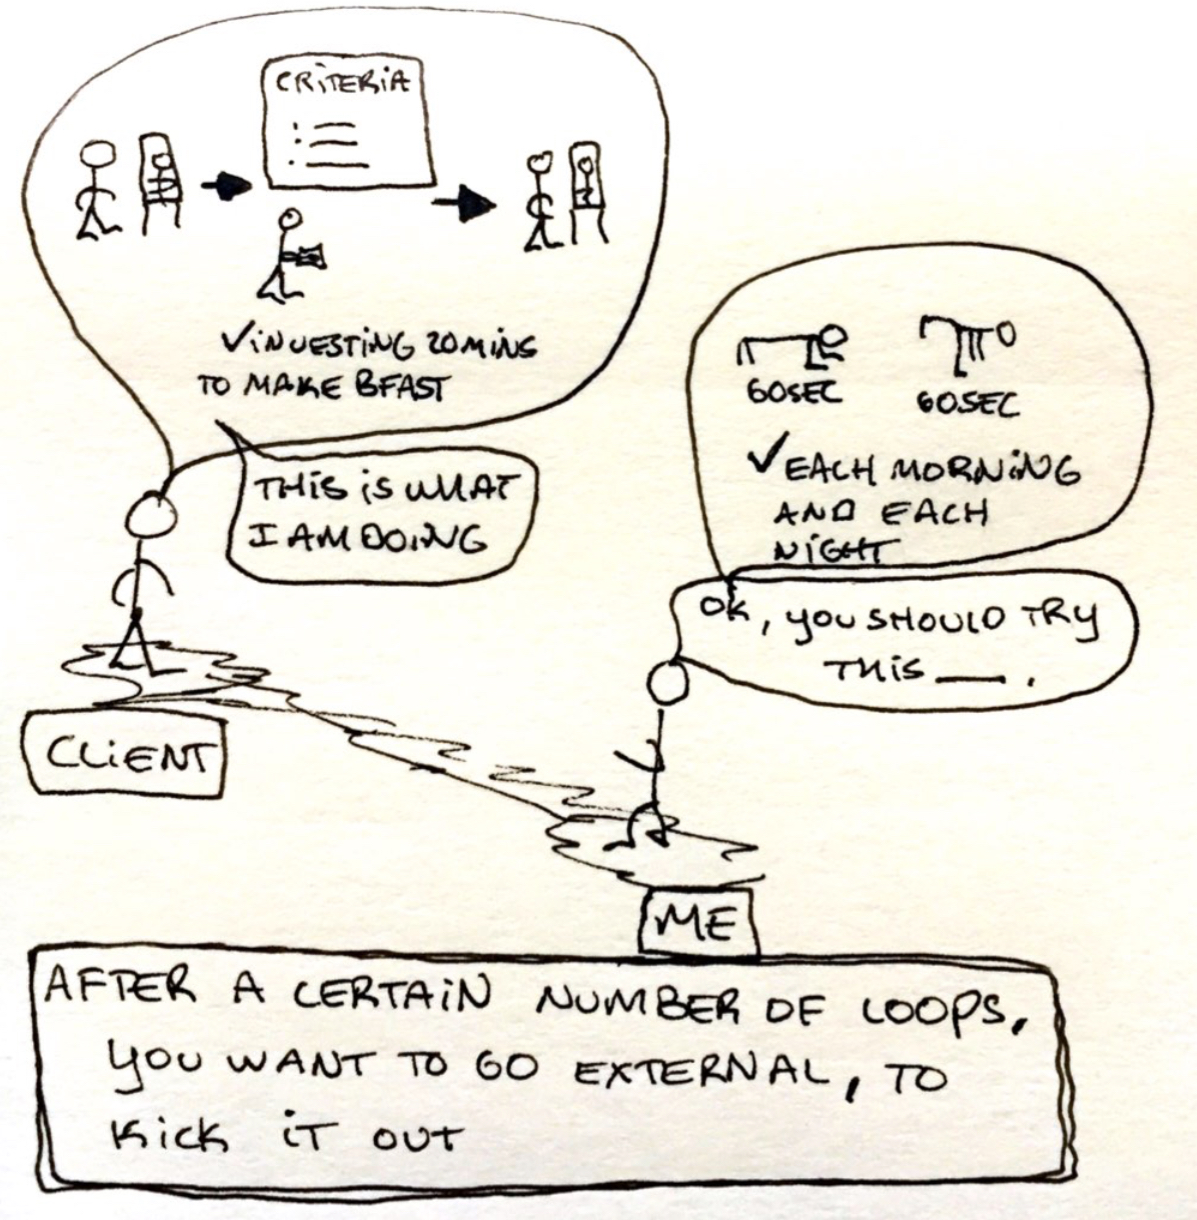 CRITERIA
✓INVESTING 20MINS
TO MAKE BFAST
THIS IS WHAT
I AM DOING
60SEC
60SEC
✓EACH MORNING
AND EACH
NIGHT
OK, YOU SHOULD TRY
THIS ___.
CLIENT
ME
AFTER A CERTAIN NUMBER OF LOOPS,
YOU WANT TO GO EXTERNAL, TO
KICK IT OUT